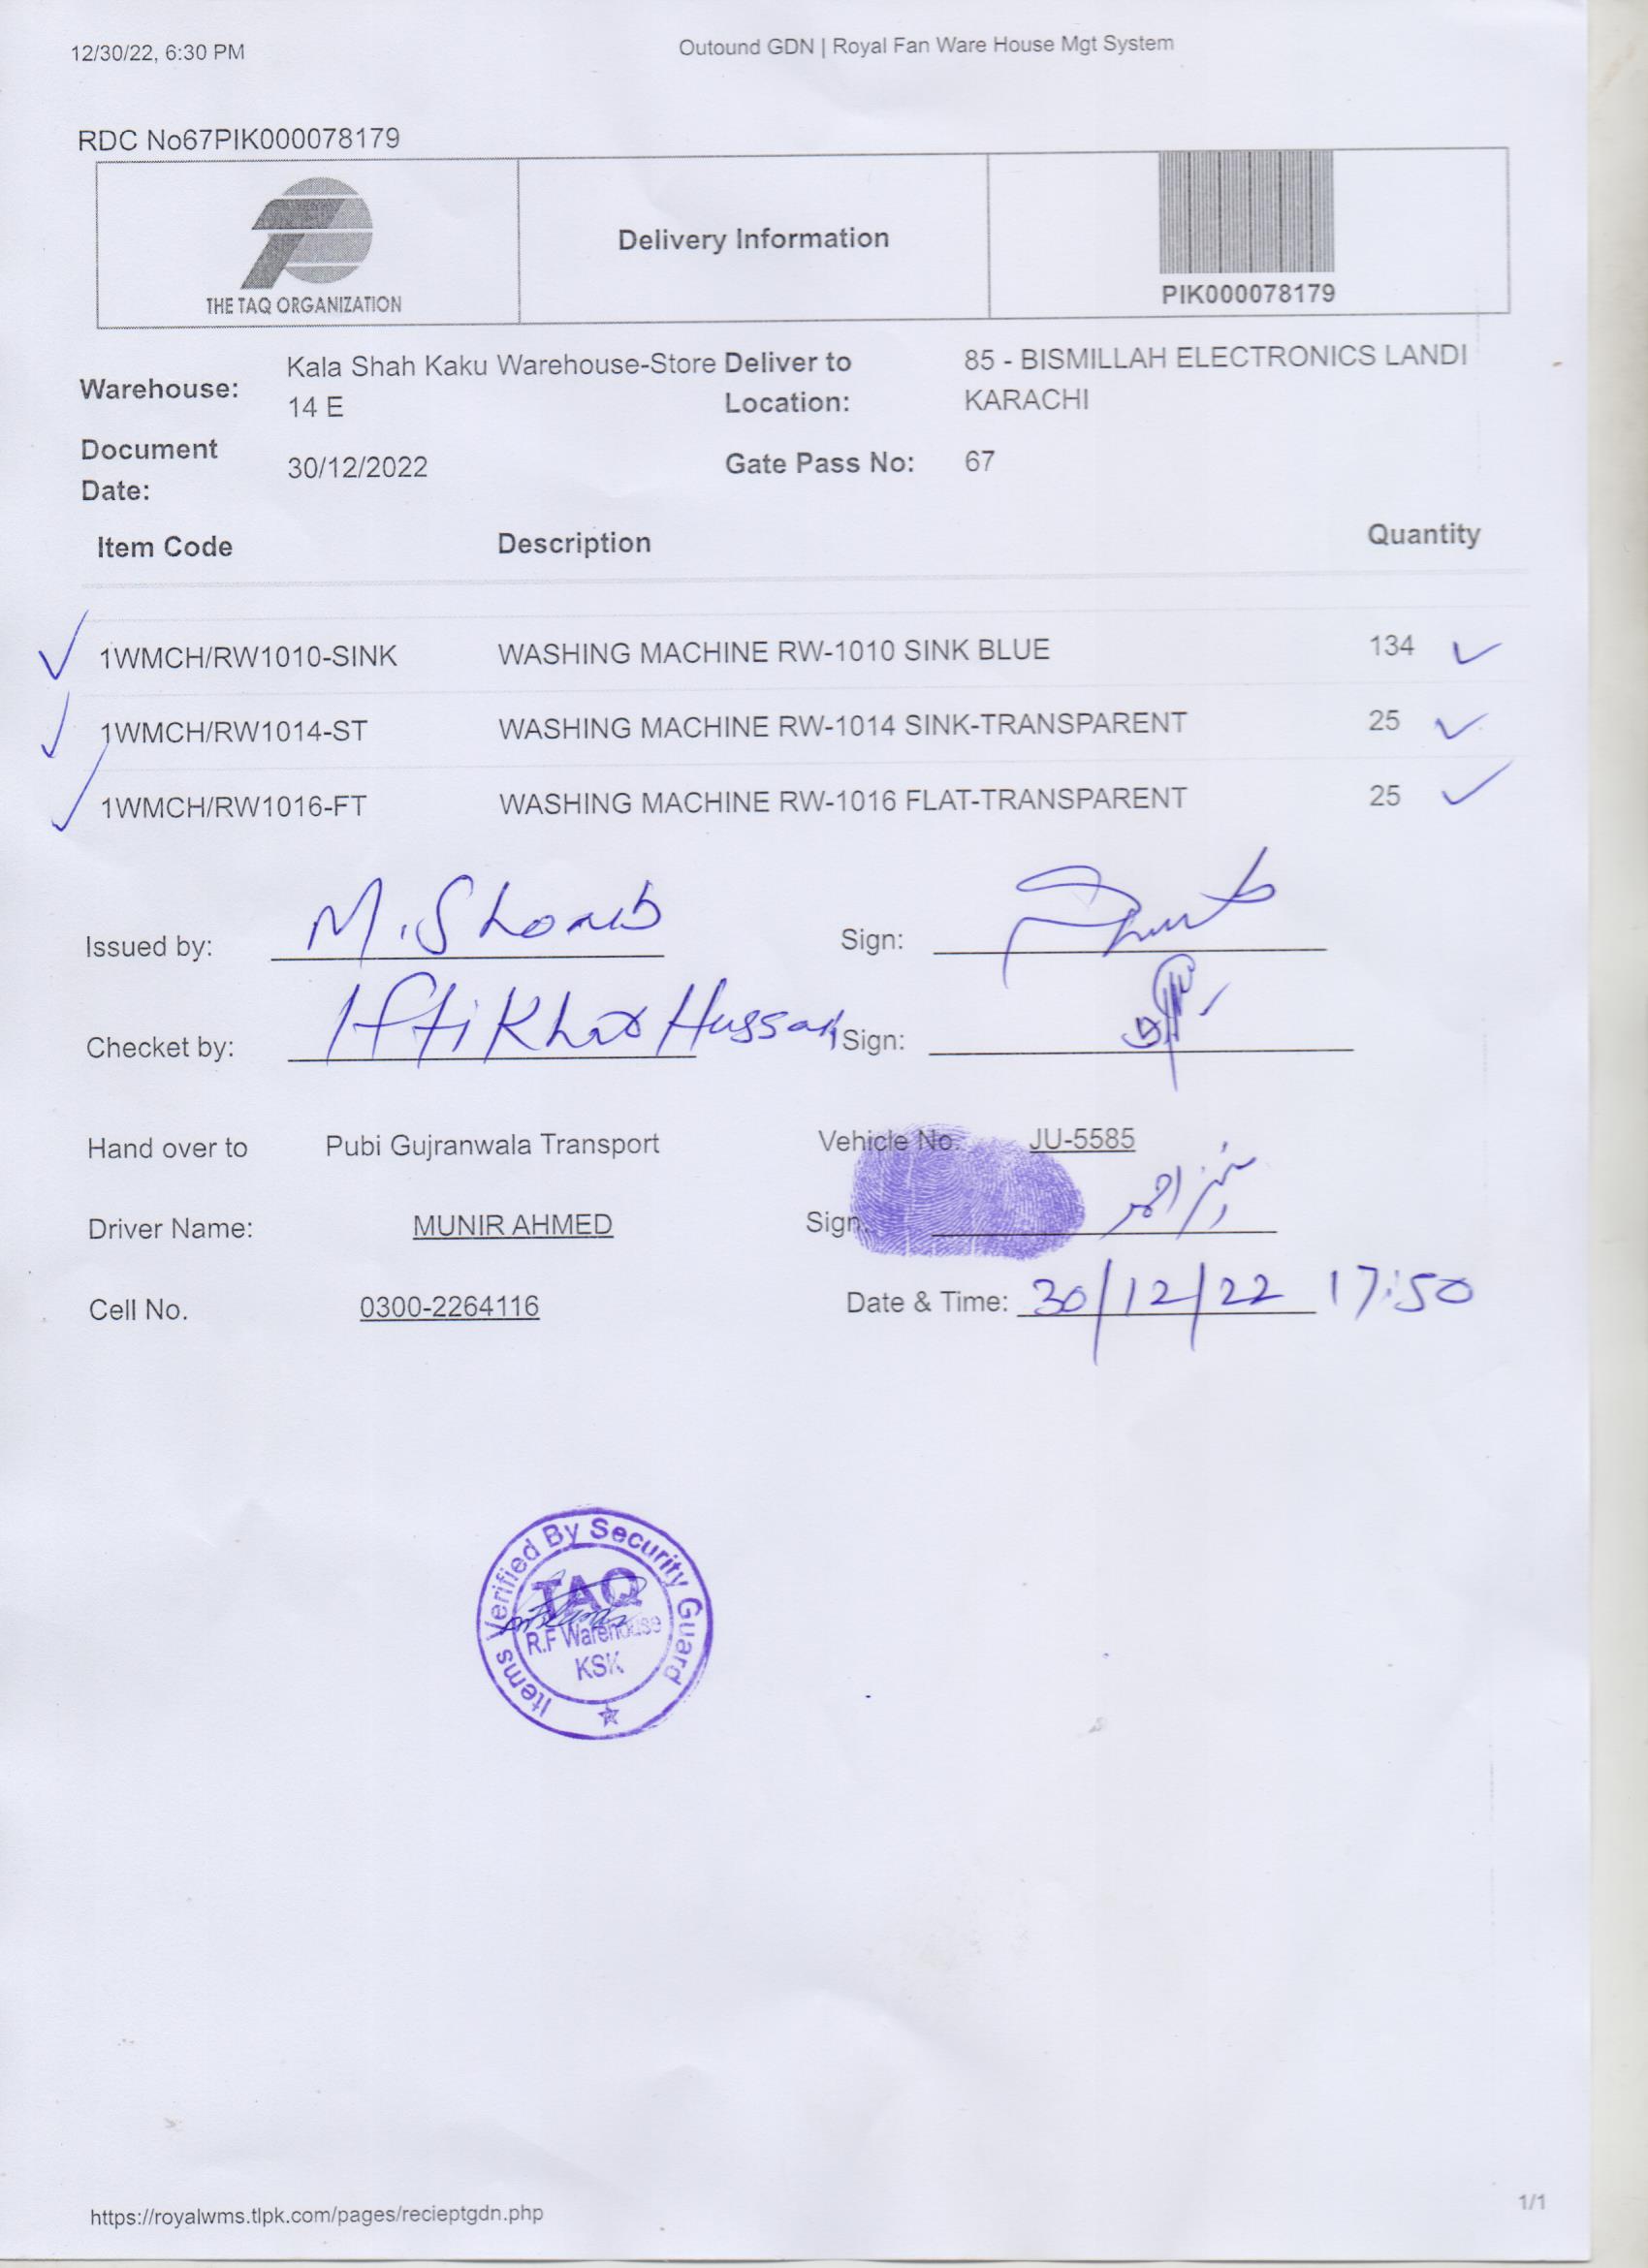 12/30/22, 6:30 PM
Outound GDN | Royal Fan Ware House Mgt System
RDC No67PIK000078179
THE TAQ ORGANIZATION
Delivery Information
PIK000078179
Warehouse: Kala Shah Kaku Warehouse-Store 14 E
Deliver to Location: 85 - BISMILLAH ELECTRONICS LANDI KARACHI
Document Date: 30/12/2022
Gate Pass No: 67
Item Code Description Quantity
1WMCH/RW1010-SINK WASHING MACHINE RW-1010 SINK BLUE 134
1WMCH/RW1014-ST WASHING MACHINE RW-1014 SINK-TRANSPARENT 25
1WMCH/RW1016-FT WASHING MACHINE RW-1016 FLAT-TRANSPARENT 25
Issued by: M. Shoaib Sign:
Checket by: Iftikhar Hussain Sign:
Hand over to Pubi Gujranwala Transport Vehicle No. JU-5585
Driver Name: MUNIR AHMED Sign: منیر احمد
Cell No. 0300-2264116 Date & Time: 30/12/22 17:50
Items Verified By Security Guard
TAQ
R.F Warehouse
KSK
https://royalwms.tlpk.com/pages/recieptgdn.php
1/1